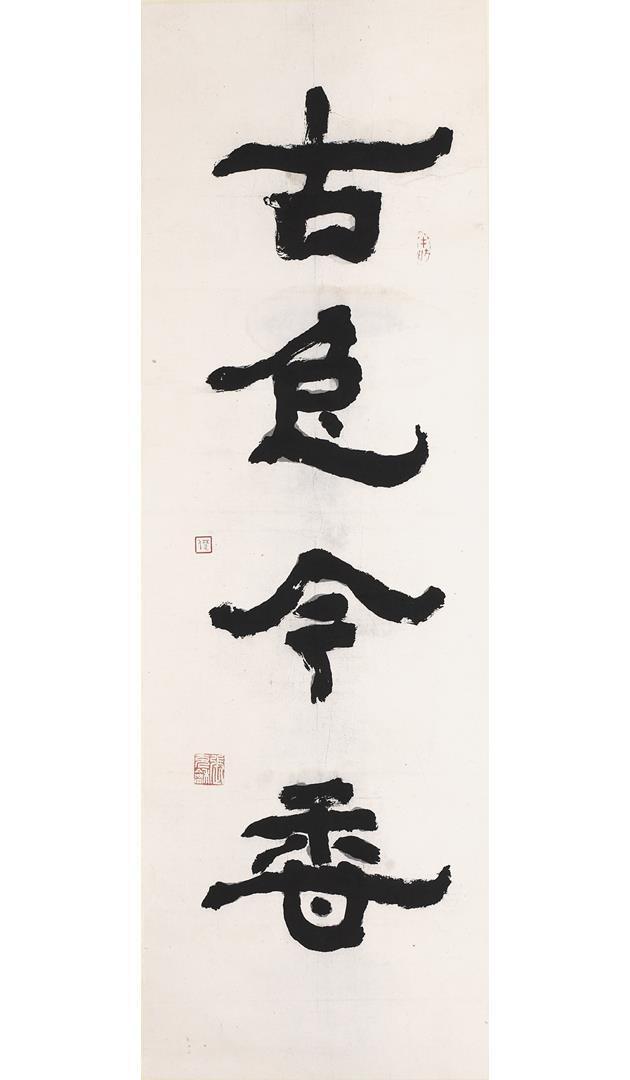 古
色
今
香